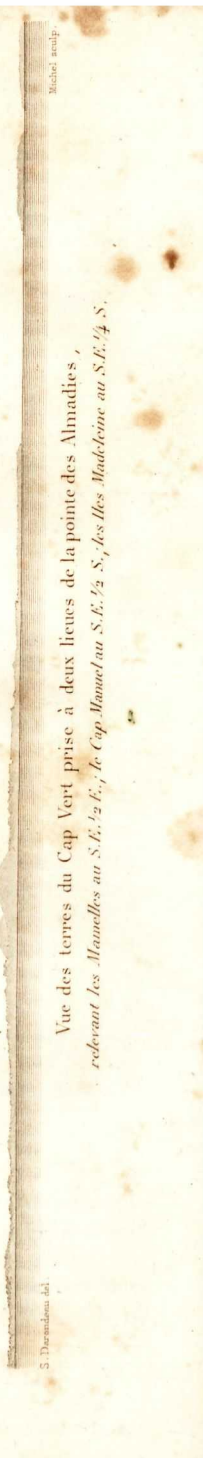 S. Darondeau del
Michel sculp.
Vue des terres du Cap Vert prise à deux lieues de la pointe des Almadies,
relevant les Mamelles au S.E. ½ E.; le Cap Manuel au S.E. ½ S.; les Iles Madeleine au S.E. ¼ S.